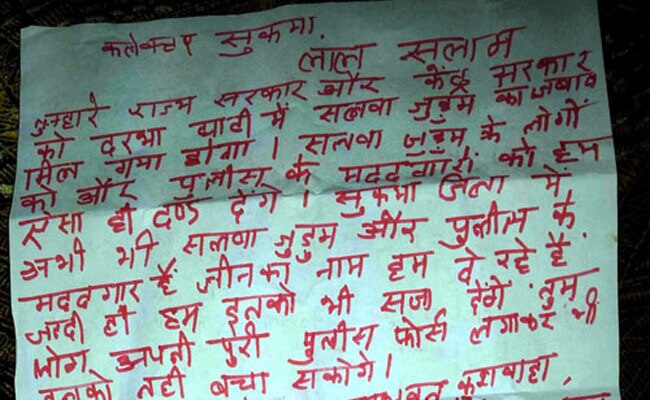 कलेक्टर सुकमा
लाल सलाम
तुम्हारे राज्य सरकार और केंद्र सरकार
को दरभा घाटी में सलवा जुडुम का जबाव
मिल गया होगा । सलवा जुडुम के लोगों
को और पुलीस के मददगारों को हम
ऐसा ही दण्ड देंगे । सुकमा जिला में
अभी भी सलवा जुडुम और पुलीस के
मददगार हैं जीनका नाम हम दे रहे हैं.
जल्दी ही हम इनको भी सजा देंगे तुम
लोग अपनी पुरी पुलीस फोर्स लगाकर भी
इनको नही बचा सकोगे ।
कुशवाहा,